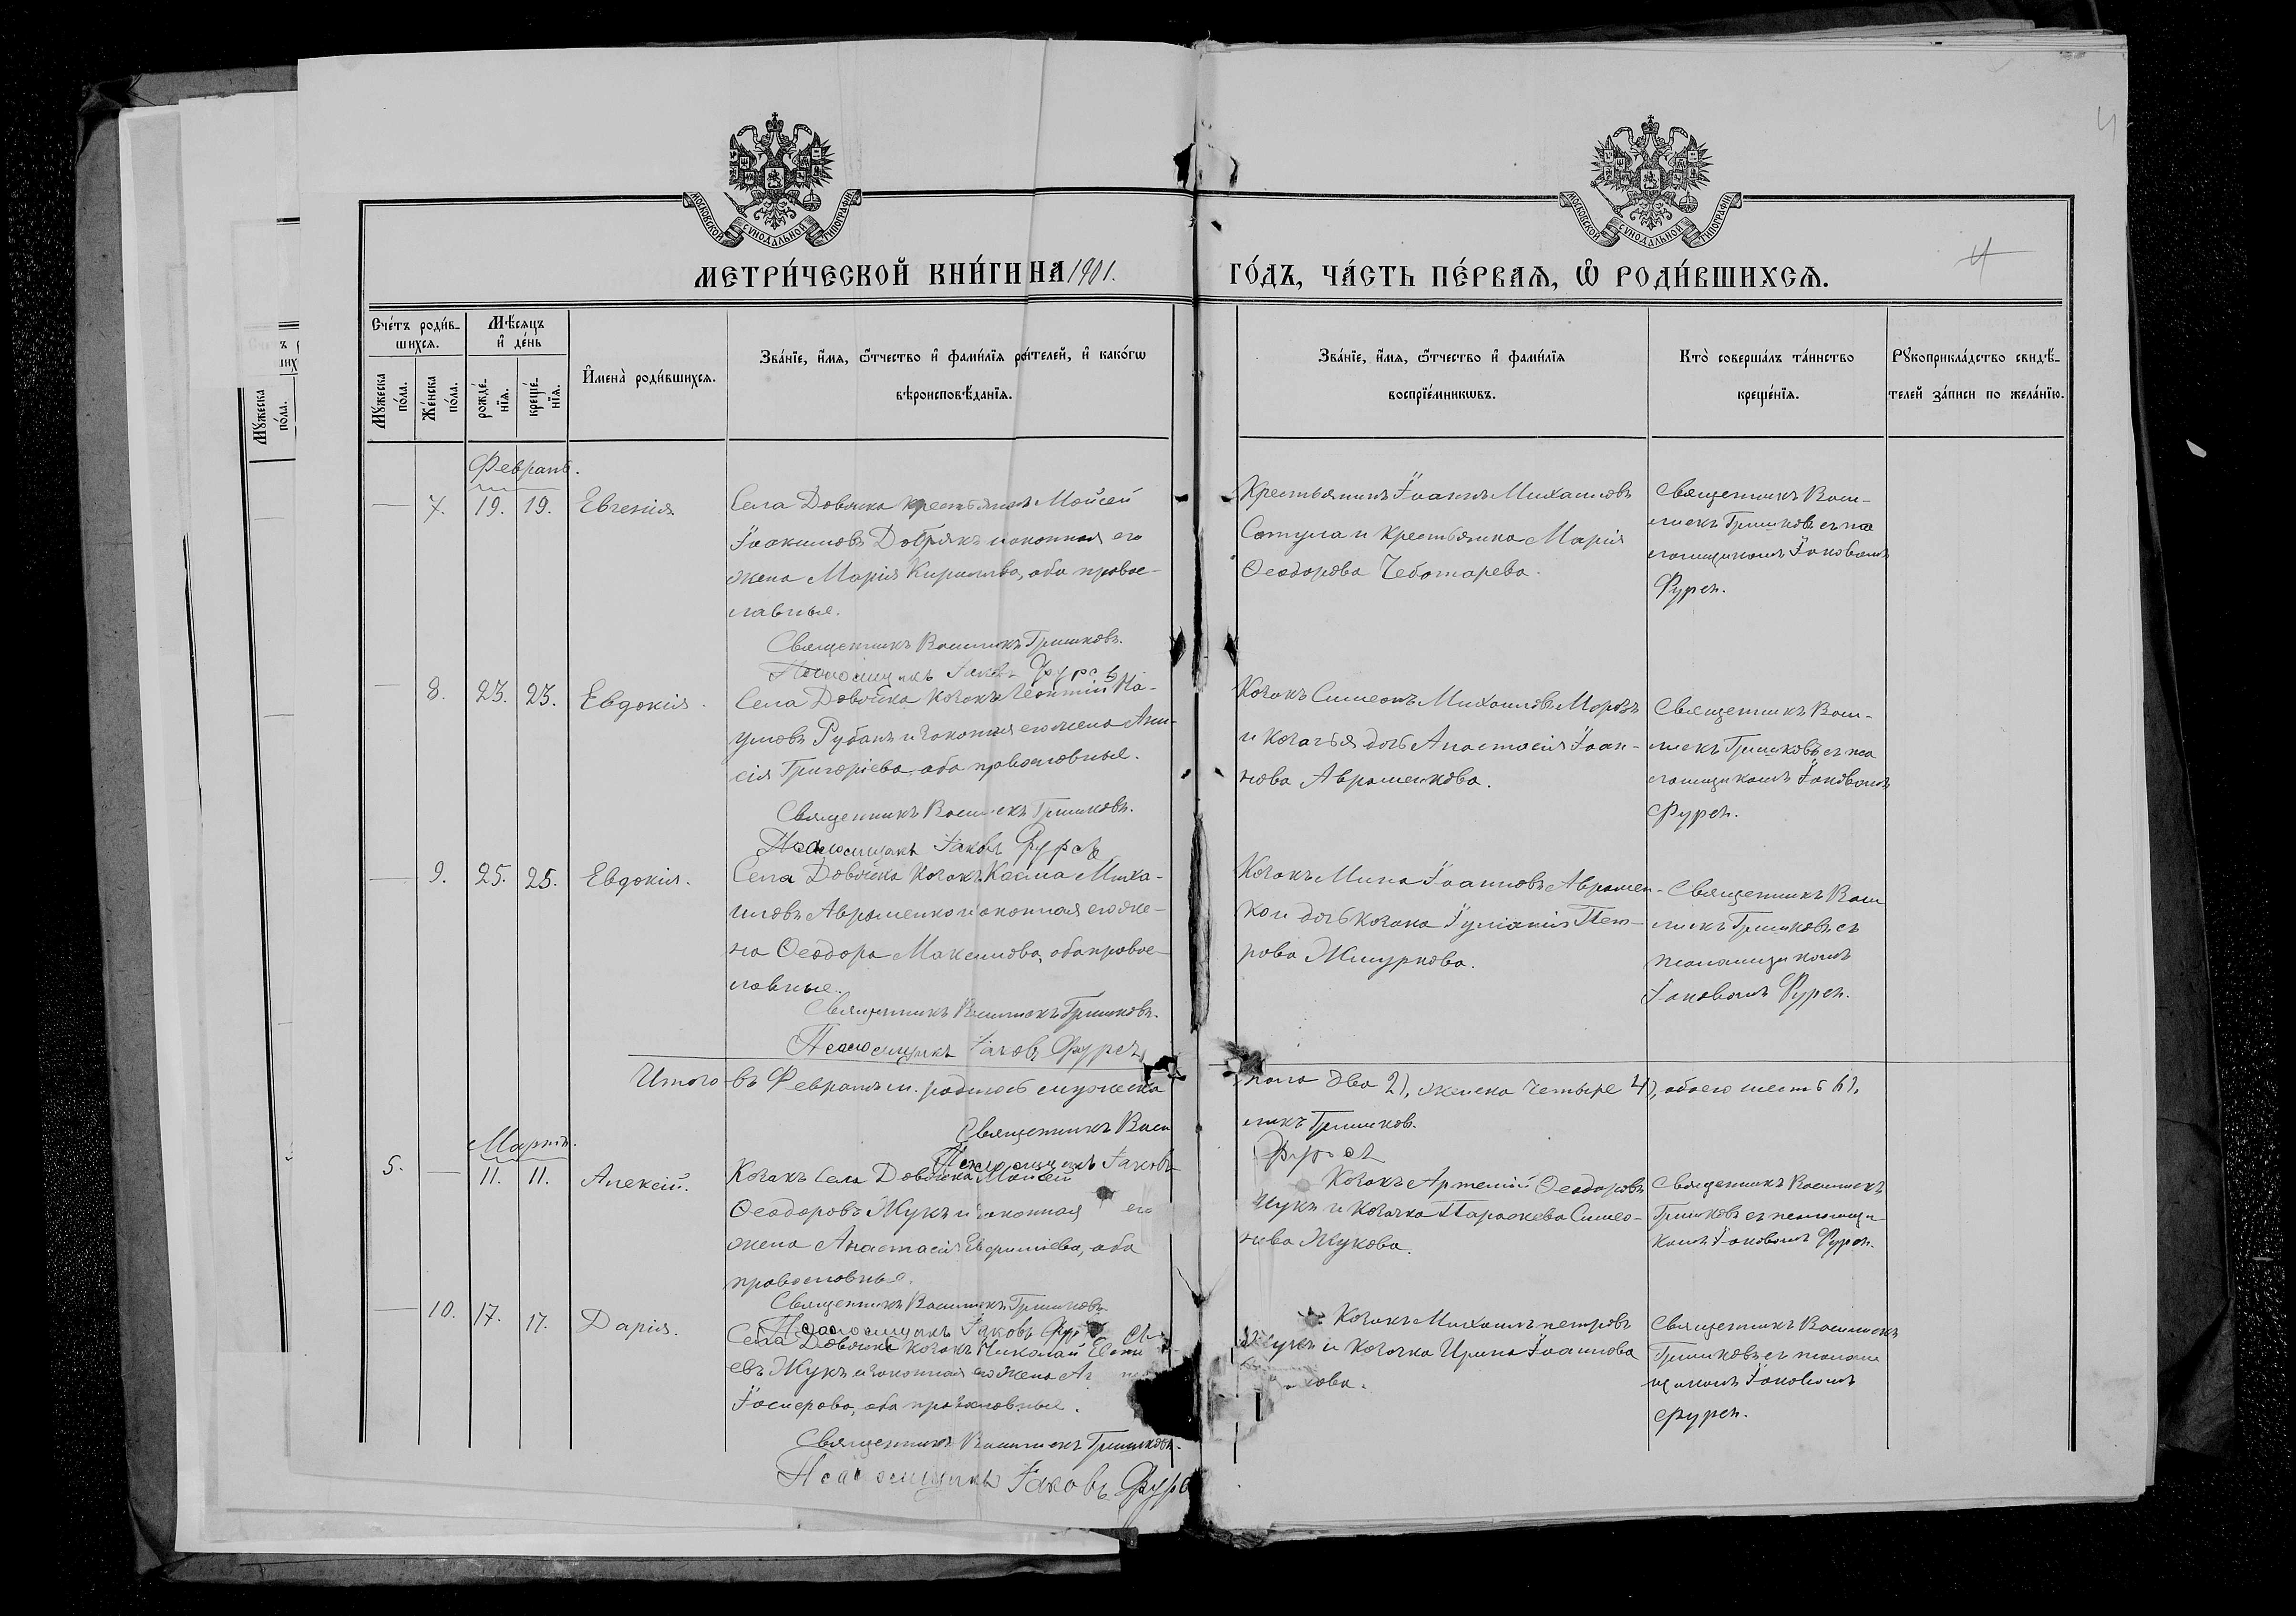 МОСКОВСКОЙ СѴНОДАЛЬНОЙ ТИПОГРАФІИ
МОСКОВСКОЙ СѴНОДАЛЬНОЙ ТИПОГРАФІИ
4
МЕТРИ́ЧЕСКОЙ КНИ́ГИ НА 1901.
ГО́ДЪ, ЧА́СТЬ ПЕ́РВАѦ, Ѽ РОДИ́ВШИХСѦ.
Сче́тъ роди́в-
шихсѧ.
Мꙋ́жеска по́ла.
Же́нска по́ла.
Мѣ́сѧцъ
и҆ де́нь
рожде́-
нїѧ.
креще́-
нїѧ.
И҆мена̀ роди́вшихсѧ.
Зва́нїе, и҆́мѧ, ѻ҆́тчество и҆ фами́лїѧ роди́телей, и҆ како́гѡ
вѣроисповѣ́данїѧ.
Зва́нїе, и҆́мѧ, ѻ҆́тчество и҆ фами́лїѧ
воспрїе́мникѡвъ.
Кто̀ соверша́лъ та́инство
креще́нїѧ.
Рꙋкоприкла́дство свидѣ́-
телей за́писи по жела́нїю.
Февраль.
— 7. 19. 19. Евгенія
Села Довжика крестьянинъ Мойсей
Іоакимовъ Добрякъ и законная его
жена Марія Кириллова, оба православ-
лавные.
Священникъ Василискъ Гришковъ.
Псаломщикъ Іаковъ Фурса
Крестьянинъ Іоаннъ Михаиловъ
Сотула и крестьянка Марія
Ѳеодорова Чеботарева.
Священникъ Васи-
лискъ Гришковъ съ пса
ломщикомъ Іаковомъ
Фурсъ.
— 8. 23. 23. Евдокія.
Села Довжика козакъ Леонтій На-
умовъ Рубанъ и законная его жена Ани-
сія Григоріева, оба православные.
Священникъ Василискъ Гришковъ.
Псаломщикъ Іаковъ Фурса
Козакъ Симеонъ Михаиловъ Морозъ
и козачья дочь Анастасія Іоан-
нова Авраменкова.
Священникъ Васи-
лискъ Гришковъ съ пса
ломщикомъ Іаковомъ
Фурсъ.
— 9. 25. 25. Евдокія.
Села Довжика козакъ Косма Миха-
иловъ Авраменко и законная его же-
на Ѳеодора Максимова, оба правос-
лавные.
Священникъ Василискъ Гришковъ.
Псаломщикъ Іаковъ Фурса
Козакъ Мина Іоанновъ Авромен-
ко и дочь козака Іуліанія Пет-
рова Жмуркова.
Священникъ Васи
лискъ Гришковъ съ
псаломщикомъ
Іаковомъ Фурсъ.
Итого въ Февралѣ м. родилось мужеска
пола два 2), женска четыре 4), обоего шесть 6).
Священникъ Васи
лискъ Гришковъ.
Псаломщикъ Іаковъ
Фурса
Мартъ.
5. — 11. 11. Алексій.
Козакъ села Довжика Моисей
Ѳеодоровъ Жукъ и законная его
жена Анастасія Евфиміева, оба
православные.
Священникъ Василискъ Гришковъ.
Псаломщикъ Іаковъ
Козакъ Артемій Ѳеодоровъ
Жукъ и козачка Параскева Симео-
нова Жукова.
Священникъ Василискъ
Гришковъ съ псаломщи-
комъ Іаковомъ Фурсъ.
— 10. 17. 17. Дарія.
Села Довжика козакъ Николай
евъ Жукъ и законная его жена
оба православные.
Священникъ Василискъ Гришковъ.
Псаломщикъ Іаковъ Фурса
Козакъ Михаилъ Петровъ
Жукъ и козачка Ирина Іоаннова
Священникъ Василискъ
Гришковъ съ псалом
щикомъ Іаковомъ
Фурсъ.